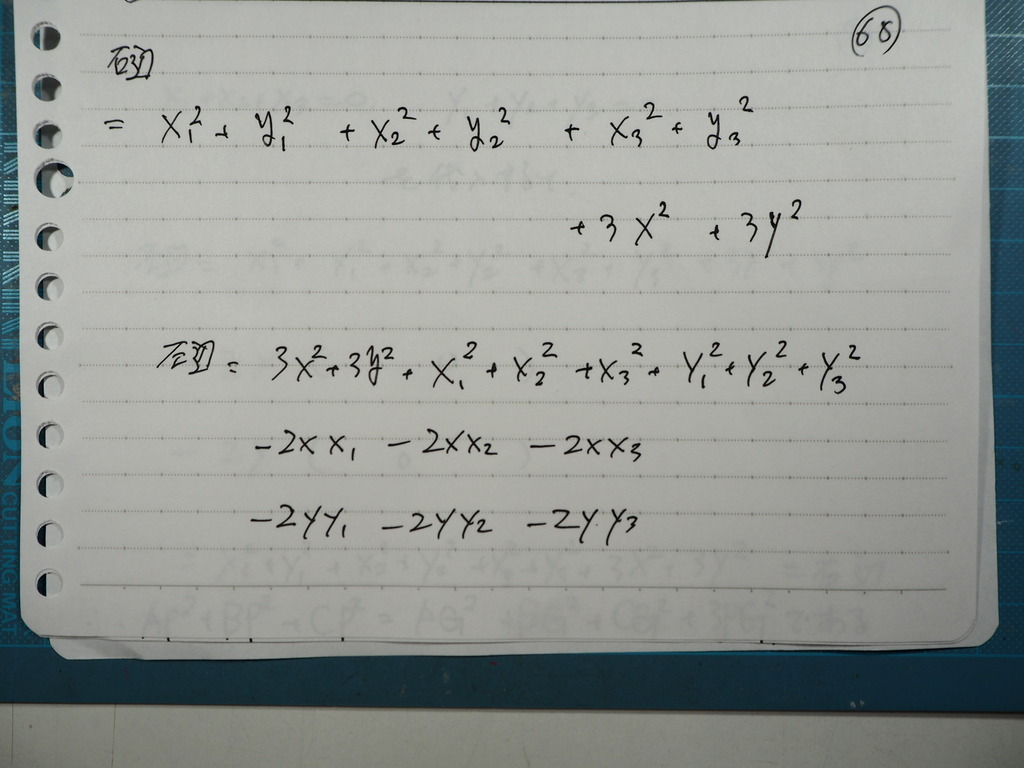 68
右辺
= x₁² + y₁² + x₂² + y₂² + x₃² + y₃²
+ 3x² + 3y²
左辺 = 3x² + 3y² + x₁² + x₂² + x₃² + y₁² + y₂² + y₃²
- 2xx₁ - 2xx₂ - 2xx₃
- 2yy₁ - 2yy₂ - 2yy₃
LION CUTTING MAT